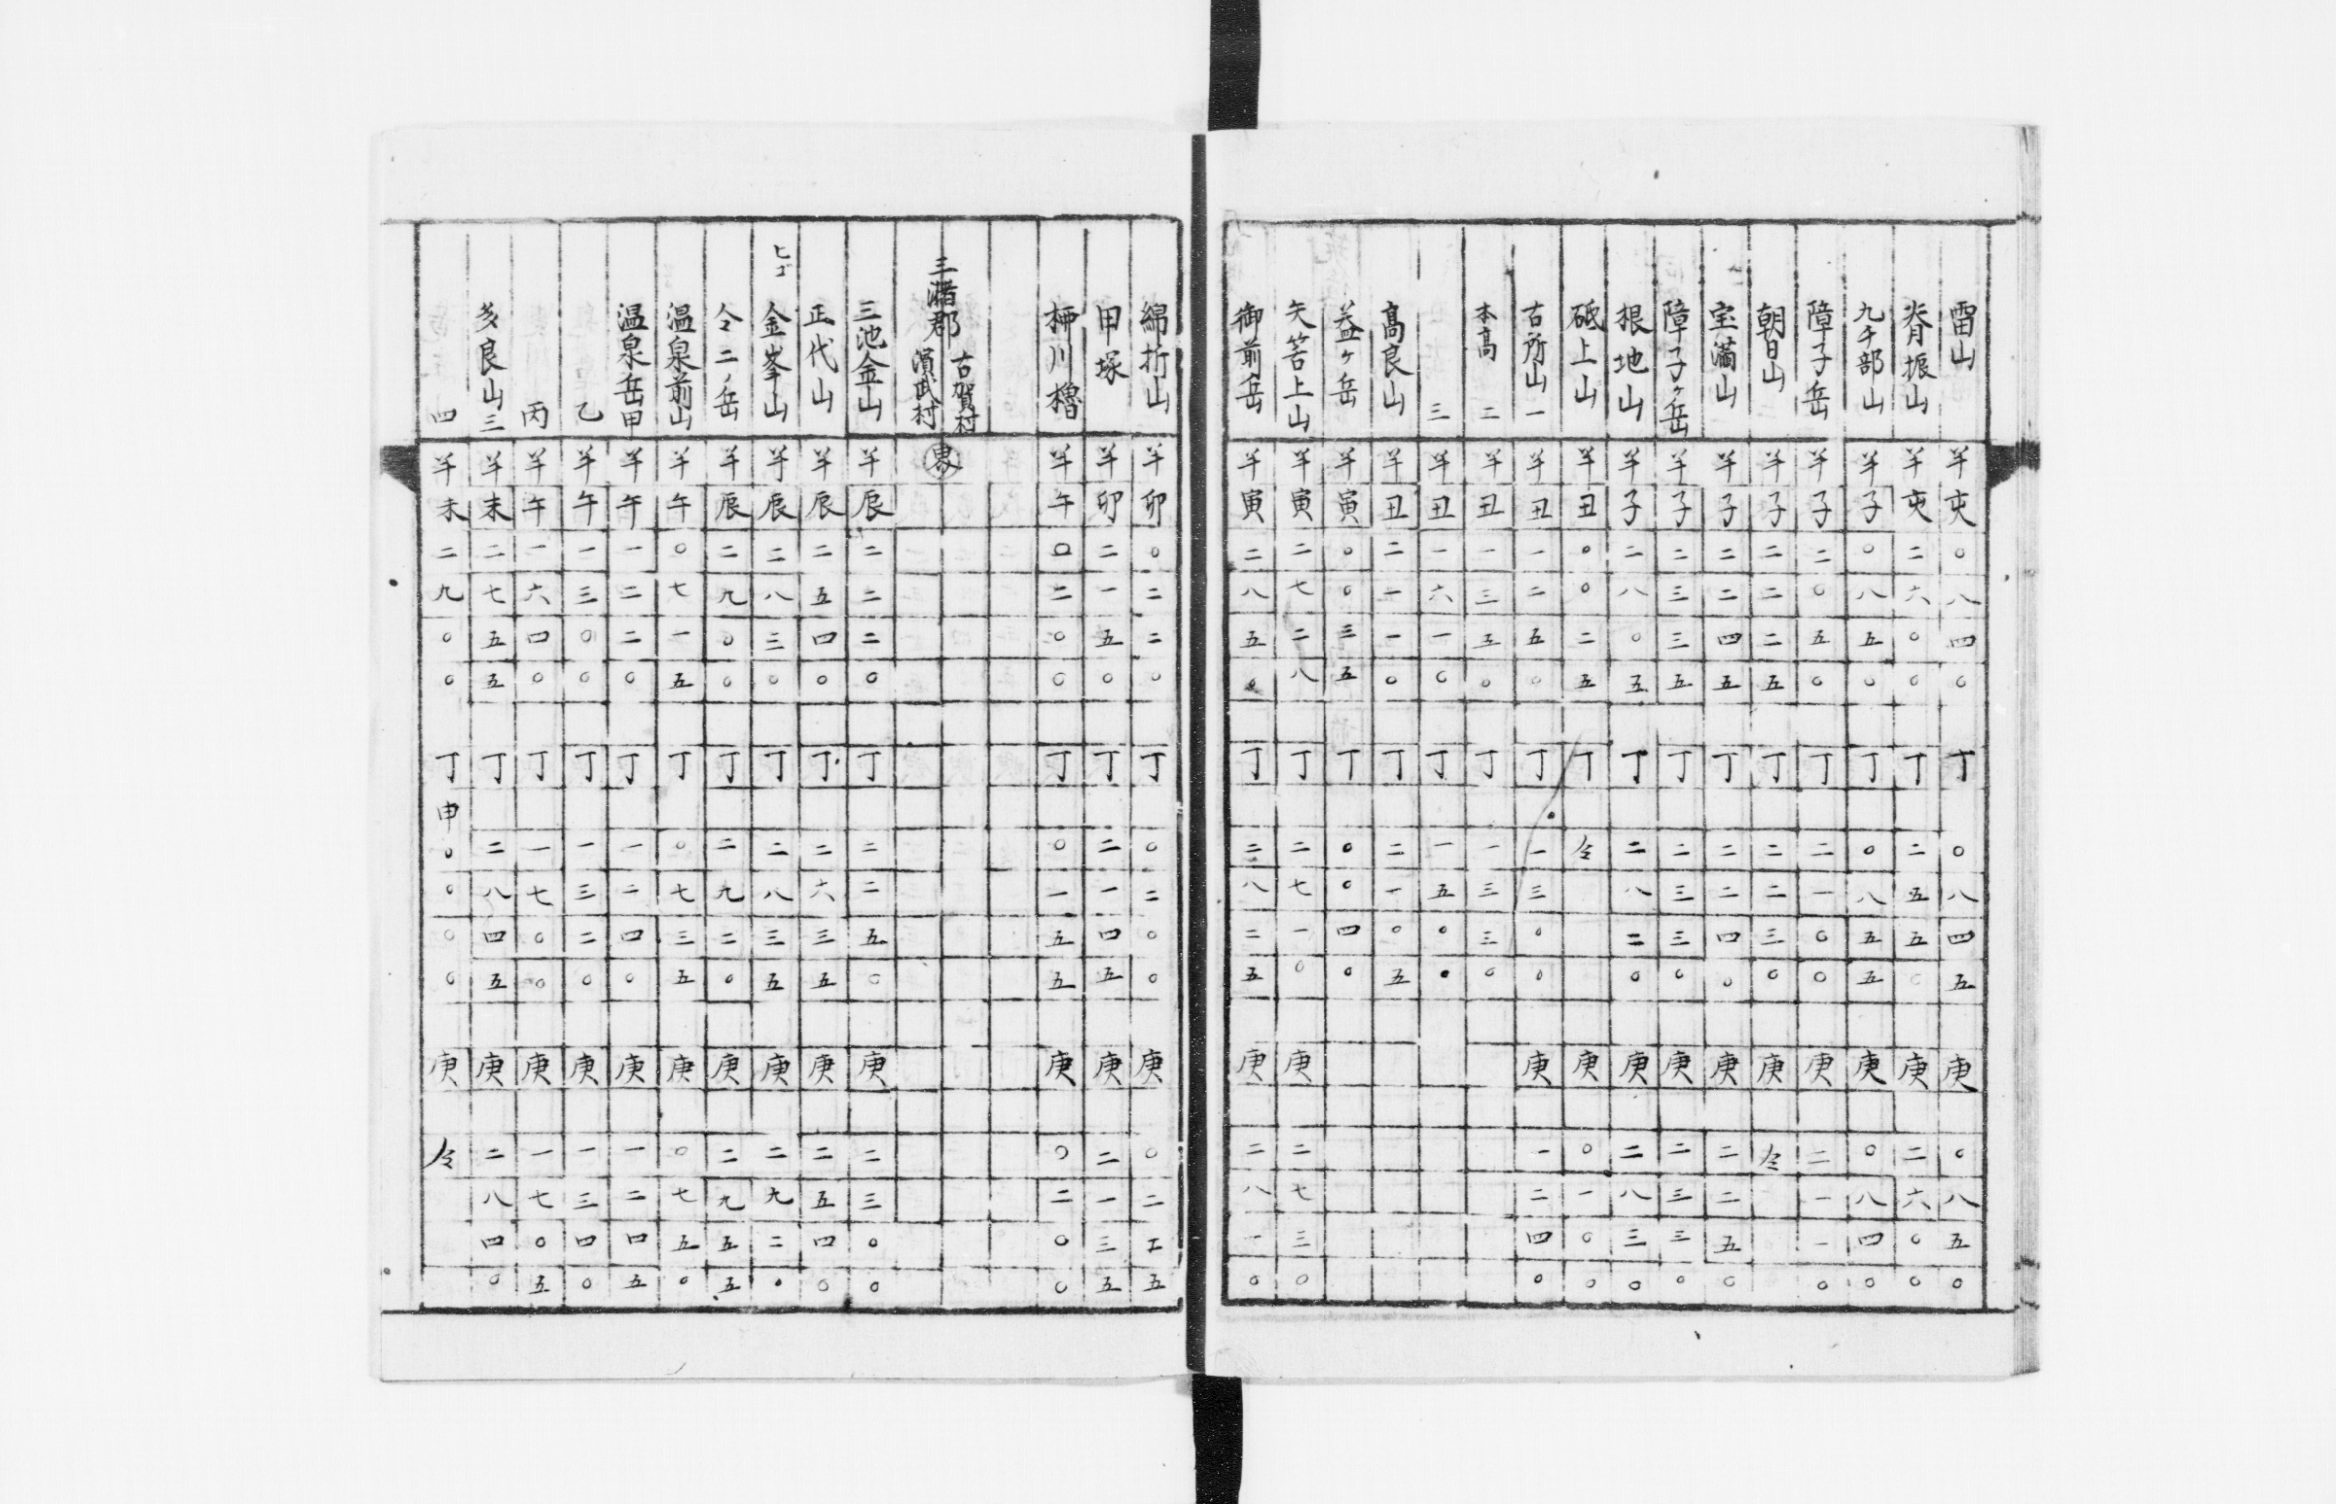 雷山 羊 亥 〇 八 四 〇 丁 〇 八 四 五 庚 〇 八 五 〇
脊振山 羊 亥 二 六 〇 〇 丁 二 五 五 〇 庚 二 六 〇 〇
九千部山 羊 子 〇 八 五 〇 丁 〇 八 五 五 庚 〇 八 四 〇
障子岳 羊 子 二 〇 五 〇 丁 二 一 〇 〇 庚 二 一 一 〇
朝日山 羊 子 二 二 二 五 丁 二 二 三 〇 庚 仝
宝満山 羊 子 二 二 四 五 丁 二 二 四 〇 庚 二 二 五 〇
障子ヶ岳 羊 子 二 三 三 五 丁 二 三 三 〇 庚 二 三 三 〇
根地山 羊 子 二 八 〇 五 丁 二 八 二 〇 庚 二 八 三 〇
砥上山 羊 丑 〇 〇 二 五 丁 仝 庚 〇 一 〇 〇
古所山 一 羊 丑 一 二 五 〇 丁 一 三 〇 〇 庚 一 二 四 〇
本高 二 羊 丑 一 三 五 〇 丁 一 三 三 〇
三 羊 丑 一 六 一 〇 丁 一 五 〇 〇
高良山 羊 丑 二 一 一 〇 丁 二 一 〇 五
益ヶ岳 羊 寅 〇 〇 三 五 丁 〇 〇 四 〇
矢筈上山 羊 寅 二 七 二 八 丁 二 七 一 〇 庚 二 七 三 〇
御前岳 羊 寅 二 八 五 〇 丁 二 八 二 五 庚 二 八 一 〇
綿打山 羊 卯 〇 二 二 〇 丁 〇 二 〇 〇 庚 〇 二 工 五
甲塚 羊 卯 二 一 五 〇 丁 二 一 四 五 庚 二 一 三 五
柳川櫓 羊 午 〇 二 〇 〇 丁 〇 一 五 五 庚 〇 二 〇 〇
三潴郡 古賀村
濱武村 界
三池金山 羊 辰 二 二 二 〇 丁 二 二 五 〇 庚 二 三 〇 〇
正代山 羊 辰 二 五 四 〇 丁 二 六 三 五 庚 二 五 四 〇
ヒゴ 金峯山 羊 辰 二 八 三 〇 丁 二 八 三 五 庚 二 九 二 〇
仝 二ノ岳 羊 辰 二 九 〇 〇 丁 二 九 二 〇 庚 二 九 五 五
温泉前山 羊 午 〇 七 一 五 丁 〇 七 三 五 庚 〇 七 五 〇
温泉岳甲 羊 午 一 二 二 〇 丁 一 二 四 〇 庚 一 二 四 五
乙 羊 午 一 三 〇 〇 丁 一 三 二 〇 庚 一 三 四 〇
丙 羊 午 一 六 四 〇 丁 一 七 〇 〇 庚 一 七 〇 五
多良山 三 羊 未 二 七 五 五 丁 二 八 四 五 庚 二 八 四 〇
四 羊 未 二 九 〇 〇 丁 申 〇 〇 〇 〇 庚 仝